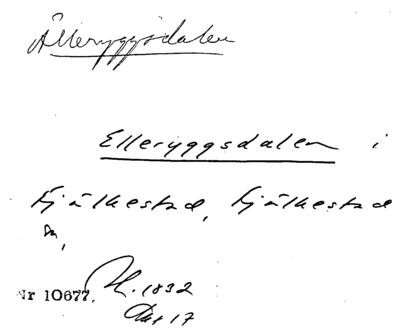 Älleryggsdalen
Elleryggsdalen i
Fjälkestad, Fjälkestad
sn,
Nr 10677. H. 1832
Akt 17